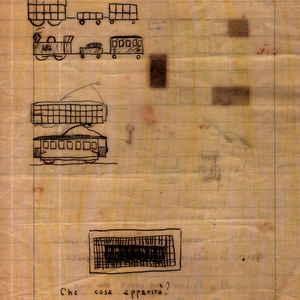 Che cosa apparirà?